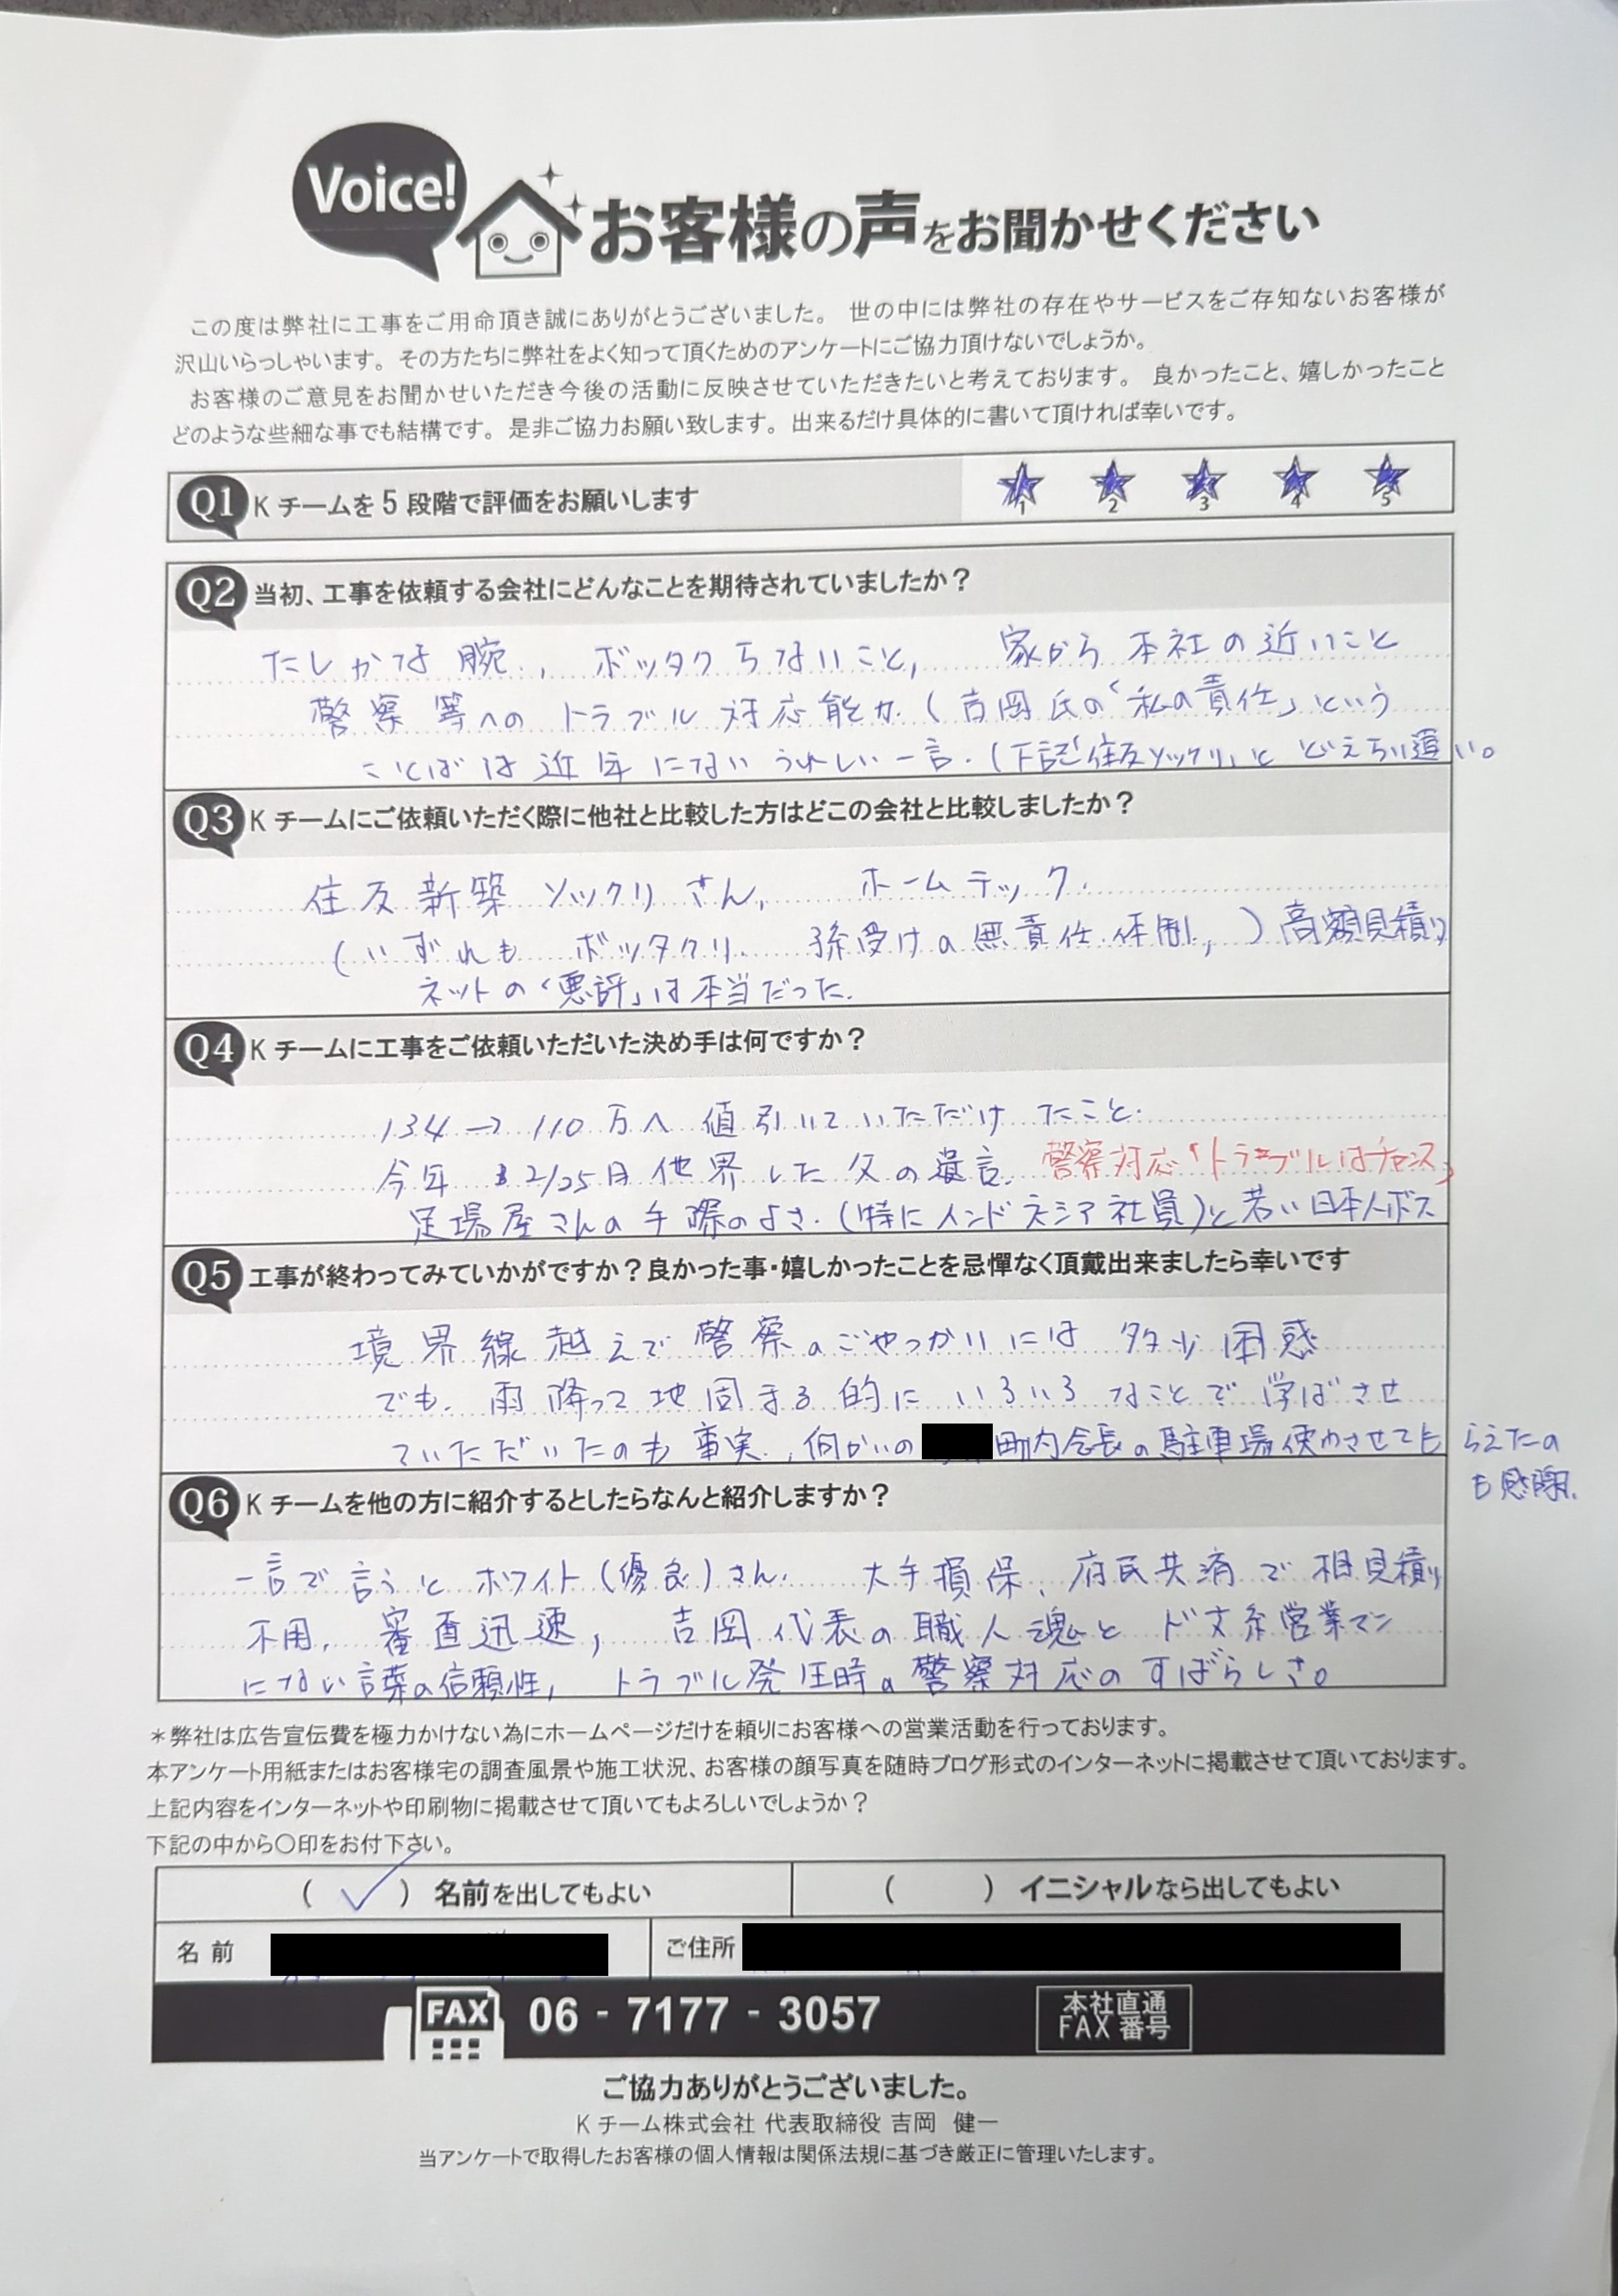 Voice!
お客様の声をお聞かせください
この度は弊社に工事をご用命頂き誠にありがとうございました。 世の中には弊社の存在やサービスをご存知ないお客様が
沢山いらっしゃいます。その方たちに弊社をよく知って頂くためのアンケートにご協力頂けないでしょうか。
お客様のご意見をお聞かせいただき今後の活動に反映させていただきたいと考えております。 良かったこと、嬉しかったこと
どのような些細な事でも結構です。是非ご協力お願い致します。出来るだけ具体的に書いて頂ければ幸いです。
Q1 Kチームを5段階で評価をお願いします 1 2 3 4 5
Q2 当初、工事を依頼する会社にどんなことを期待されていましたか？
たしかな腕、ボッタクらないこと、 家から本社の近いこと
警察等へのトラブル対応能力(吉岡氏の「私の責任」という
ことばは近年にないうれしい一言.(下記「住友ソックリ」と どえらい違い。
Q3 Kチームにご依頼いただく際に他社と比較した方はどこの会社と比較しましたか？
住友新築ソックリさん, ホームテック.
(いずれもボッタクリ. 孫受けの無責任体制,)高額見積り
ネットの「悪評」は本当だった.
Q4 Kチームに工事をご依頼いただいた決め手は何ですか？
134→110万へ値引いていただけたこと.
今年 2/25日他界した父の遺言. 警察対応「トラブルはチャンス」
足場屋さんの手際のよさ.(特にインドネシア社員)と若い日本人ボス
Q5 工事が終わってみていかがですか？良かった事・嬉しかったことを忌憚なく頂戴出来ましたら幸いです
境界線越えで警察のごやっかいには多少困惑
でも.雨降って地固まる的にいろいろなことで学ばさせ
ていただいたのも事実.、向かいの 町内会長の駐車場使わさせてもらえたの
も感謝.
Q6 Kチームを他の方に紹介するとしたらなんと紹介しますか？
一言で言うとホワイト(優良)さん. 大手損保、府民共済で相見積り
不用, 審査迅速, 吉岡代表の職人魂とド文系営業マン
にない言葉の信頼性, トラブル発生時の警察対応のすばらしさ。
＊弊社は広告宣伝費を極力かけない為にホームページだけを頼りにお客様への営業活動を行っております。
本アンケート用紙またはお客様宅の調査風景や施工状況、お客様の顔写真を随時ブログ形式のインターネットに掲載させて頂いております。
上記内容をインターネットや印刷物に掲載させて頂いてもよろしいでしょうか？
下記の中から〇印をお付下さい。
(✓) 名前を出してもよい ( ) イニシャルなら出してもよい
名前 ご住所
FAX 06 - 7177 - 3057 本社直通
FAX 番号
ご協力ありがとうございました。
Kチーム株式会社 代表取締役 吉岡 健一
当アンケートで取得したお客様の個人情報は関係法規に基づき厳正に管理いたします。